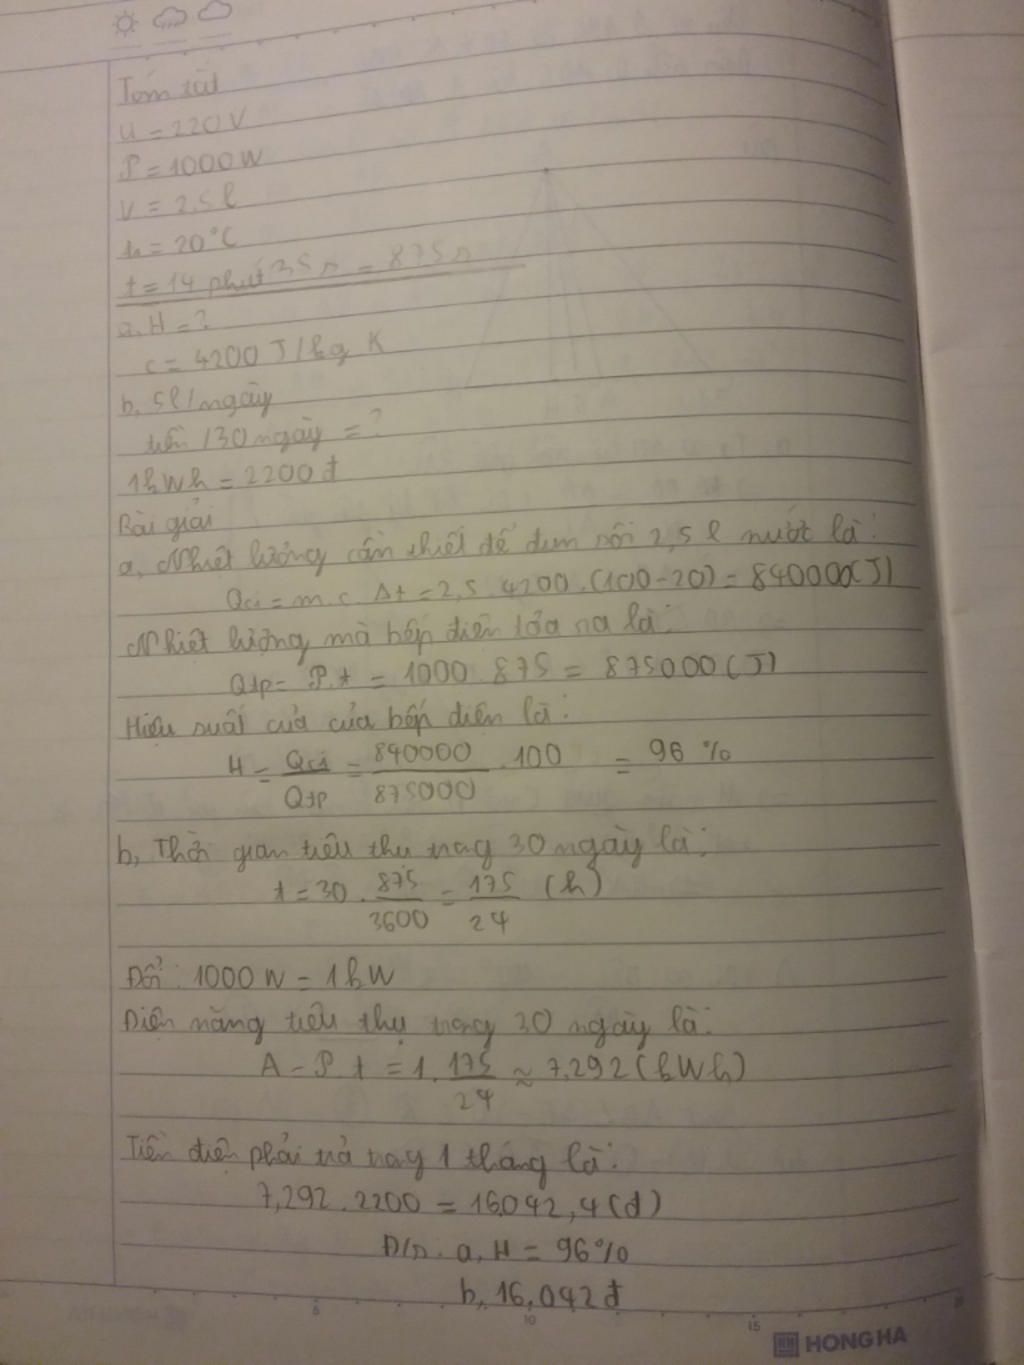 Tóm tắt
U = 220V
P = 1000W
V = 2,5l
t₁ = 20°C
t = 14 phút 35s = 875s
a, H = ?
c = 4200 J/kg K
b, 5l/ngày
tiền /30 ngày = ?
1kWh = 2200đ
Bài giải
a, Nhiệt lượng cần thiết để đun sôi 2,5l nước là:
Qci = m.c.Δt = 2,5.4200.(100-20) = 840000(J)
Nhiệt lượng mà bếp điện tỏa ra là:
Qtp = P.t = 1000.875 = 875000(J)
Hiệu suất của của bếp điện là:
H = Qci/Qtp = 840000/875000 .100 = 96 %
b, Thời gian tiêu thụ trog 30 ngày là:
t = 30 . 875/3600 = 175/24 (h)
Đổi: 1000W = 1kW
Điện năng tiêu thụ trong 30 ngày là:
A = P.t = 1. 175/24 ≈ 7,292 (kWh)
Tiền điện phải trả trog 1 tháng là:
7,292.2200 = 16042,4(đ)
Đ/s: a, H = 96%
b, 16,042đ
5 10 15
HONG HA